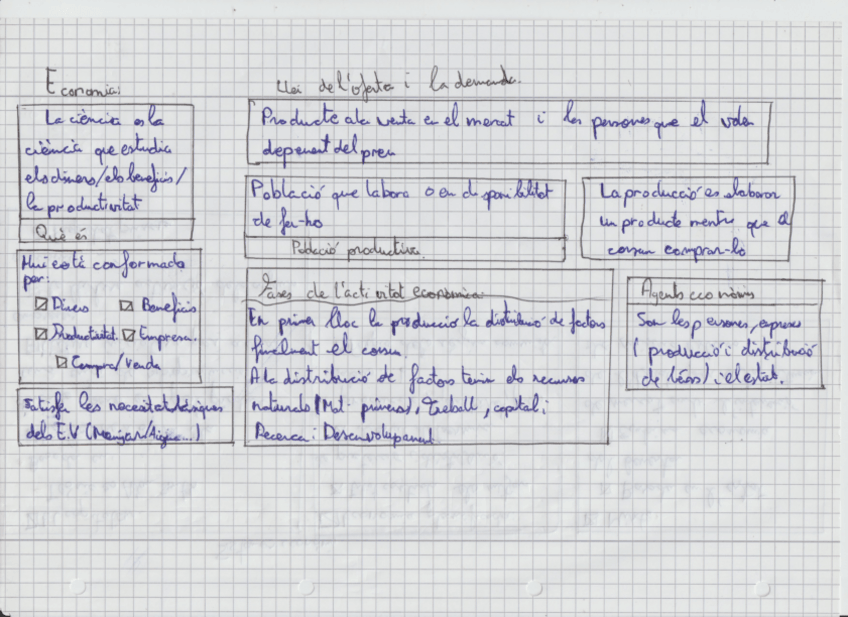 Economia:
La ciència es la
ciència que estudia
els diners/els beneficis/
la productivitat
Què és
Hui està conformada
per:
Diners
Beneficis
Productivitat
Empresa
Compra/Venda
Satisfer les necessitats bàsiques
dels E.V (Menjar/Aigua...)
Llei de l'oferta i la demanda.
Producte a la venta en el mercat i les persones que el volen
depenent del preu
Població que labora o en disponibilitat
de fer-ho
Població productiva.
La producció es elaborar
un producte mentre que el
consum comprar-lo
Fases de l'activitat econòmica
En primer lloc la producció la distribució de factors
finalment el consum.
A la distribució de factors tenim els recursos
naturals (Mat. primeres), Treball, capital i
Recerca i Desenvolupament
Agents econòmics
Son les persones, empreses
(producció i distribució
de) i el estat.